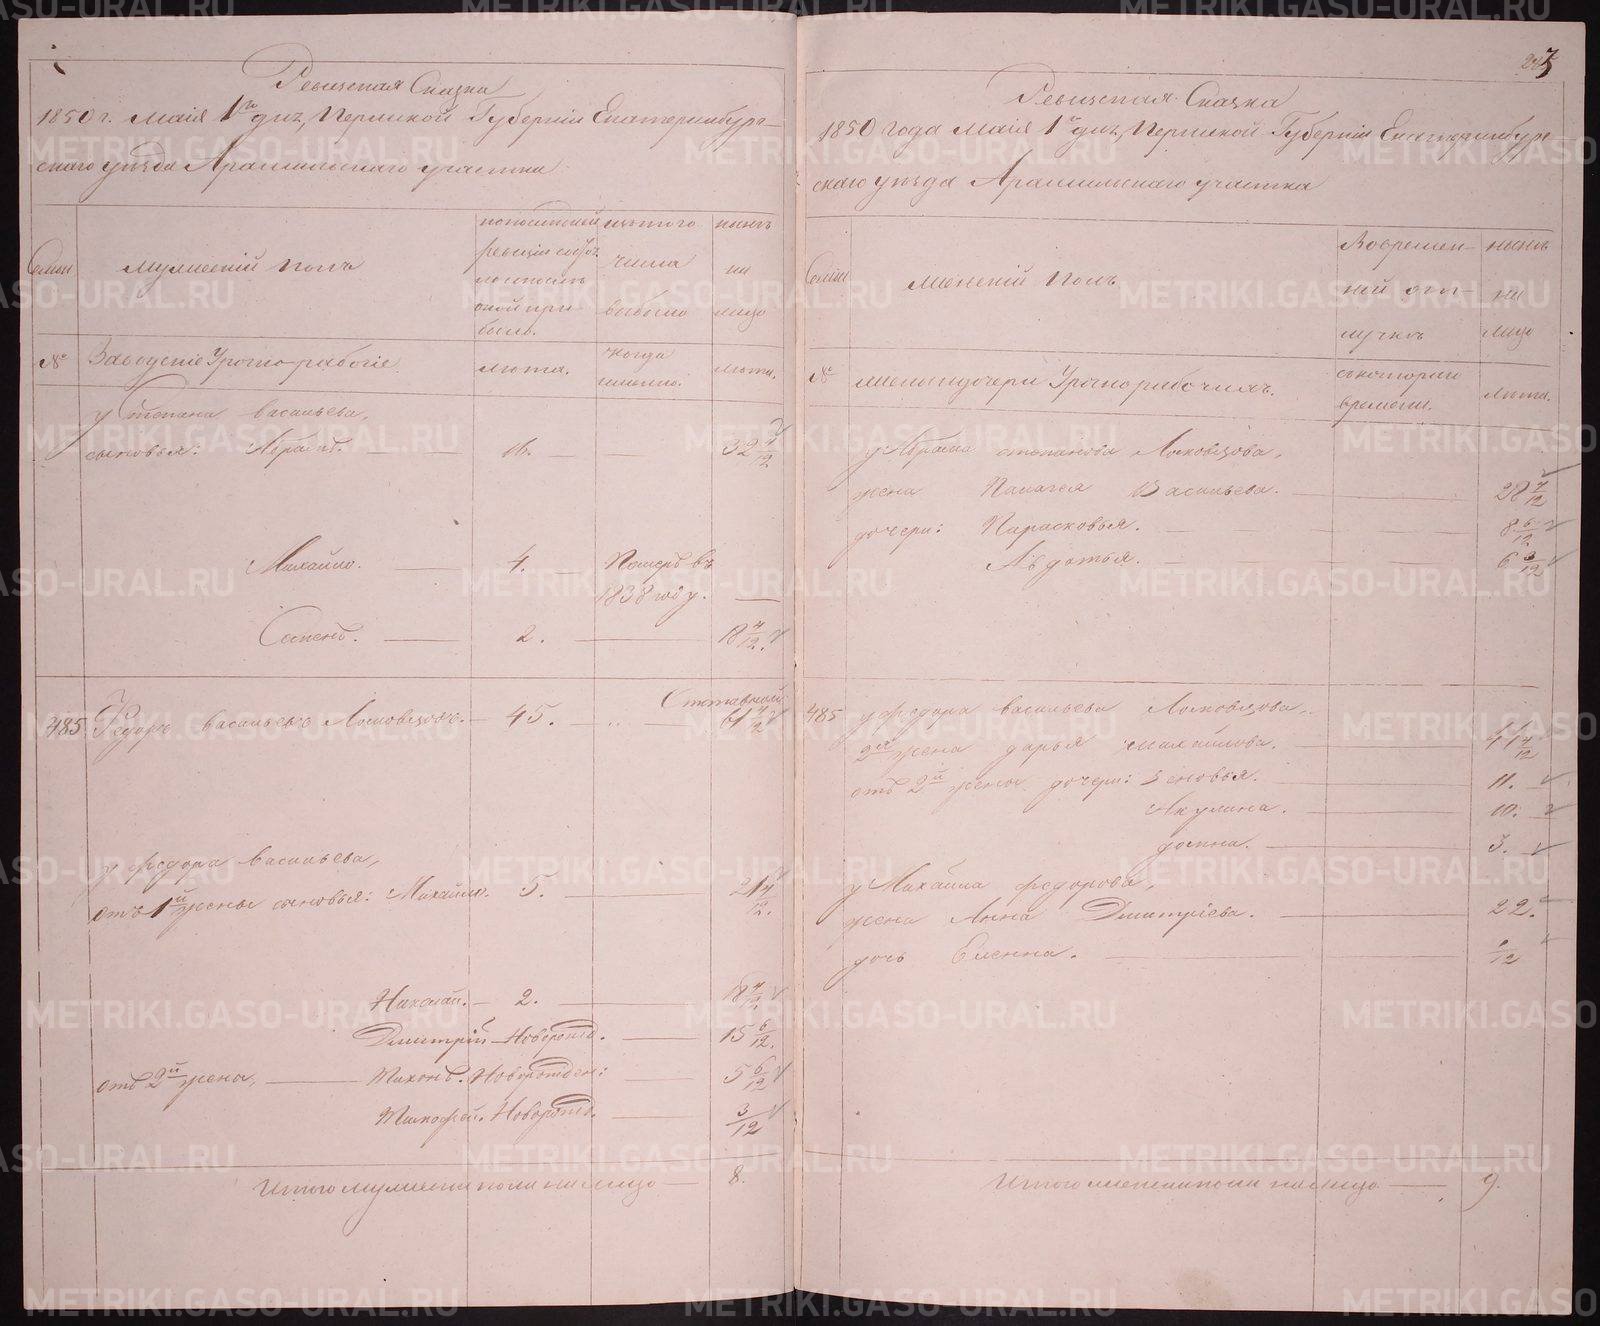 Ревизская Сказка
1850 г. Маiя 1го дня, Пермской Губернiи Екатеринбург-
скаго уѣзда Арамильскаго участка
Семьи
Мужеский полъ
по последней ревизiи состояло и после оной прибыло.
изъ того числа выбыло
нынѣ на лицо
№
Заводскiе Урочно-рабочiе
лѣта.
когда именно.
лѣта.
у Степана Васильева,
сыновья: Абрамъ. 16. 32 4/12
Михайло. 4. Померъ въ
1838 году.
Семенъ. 2. 18 4/12.
Отставной
485 Федоръ Васильевъ Лосковцовъ. 45. 61 4/12
у Федора Васильева,
отъ 1й жены сыновья: Михайло. 5. 21 4/12.
Николай. 2. 18 4/12.
Дмитрiй Новорожд. 15 6/12.
отъ 2й жены, Тихонъ. Новорожден: 5 6/12
Тимофей. Новорожд. 3/12
Итого мужеска пола на лицо 8.
Ревизская Сказка
1850 года Маiя 1го дня, Пермской Губернiи Екатеринбург-
скаго уѣзда Арамильскаго участка
Семьи
Женскiй полъ
Во времен-
ной отлучкѣ
нынѣ на лицо
№
жены и дочери Урочнорабочихъ.
съ котораго времени.
лѣта.
у Абрама Степанова Лосковцова,
жена Палагея Васильева. 28 4/12
дочери: Парасковья. 8 6/12
Авдотья. 6 3/12
485 у Федора Васильева Лосковцова,
2я жена Дарья Михайлова. 41 4/12
отъ 2й жены дочери: Зеновья. 11.
Акулина. 10.
Домна. 3.
у Михайла Федорова,
жена Анна Дмитрiева. 22.
дочь Еленна. /12
Итого женска пола на лицо 9.
METRIKI.GASO-URAL.RU